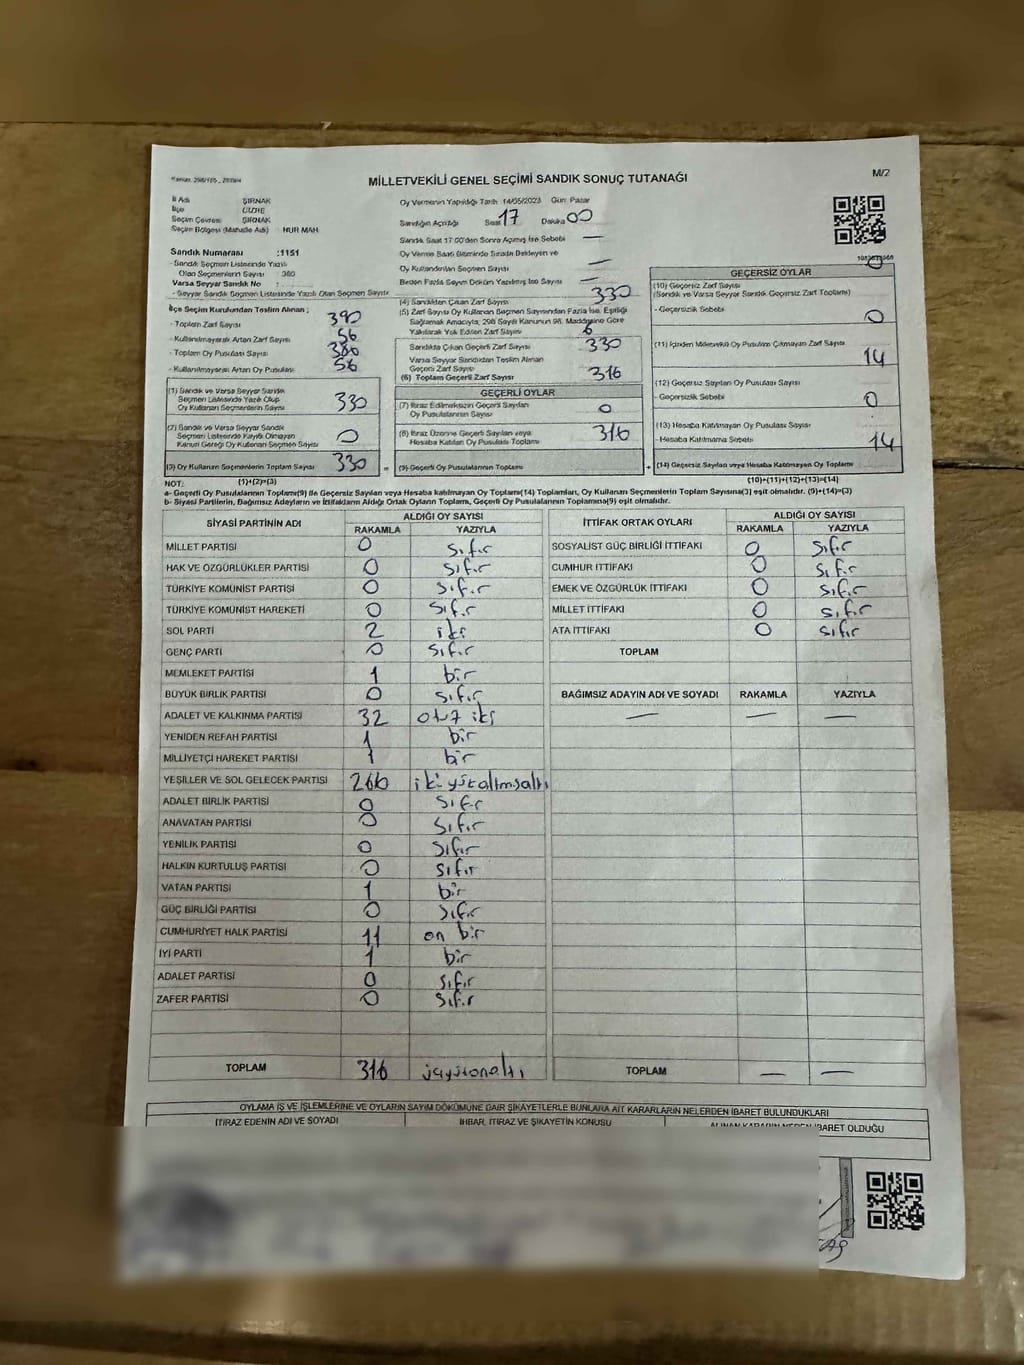 MİLLETVEKİLİ GENEL SEÇİMİ SANDIK SONUÇ TUTANAĞI
M/2
İl Adı ŞIRNAK
İlçe CİZRE
Seçim Çevresi ŞIRNAK
Seçim Bölgesi (Mahalle Adı) NUR MAH
Sandık Numarası :1151
- Sandık Seçmen Listesinde Yazılı
Olan Seçmenlerin Sayısı 380
Varsa Seyyar Sandık No :
- Seyyar Sandık Seçmen Listesinde Yazılı Olan Seçmen Sayısı
İlçe Seçim Kurulundan Teslim Alınan ;
- Toplam Zarf Sayısı 390
- Kullanılmayarak Artan Zarf Sayısı 56
- Toplam Oy Pusulası Sayısı 380
- Kullanılmayarak Artan Oy Pusulası 56
(1) Sandık ve Varsa Seyyar Sandık
Seçmen Listesinde Yazılı Olup
Oy Kullanan Seçmenlerin Sayısı 330
(2) Sandık ve Varsa Seyyar Sandık
Seçmen Listesinde Kayıtlı Olmayan
Kanun Gereği Oy Kullanan Seçmen Sayısı 0
(3) Oy Kullanan Seçmenlerin Toplam Sayısı 330
(1)+(2)=(3)
Oy Vermenin Yapıldığı Tarih 14/05/2023 Gün: Pazar
Sandığın Açıldığı Saat 17 Dakika 00
Sandık Saat 17 00'den Sonra Açılmış İse Sebebi —
Oy Verme Saati Bitiminde Sırada Bekleyen ve
Oy Kullandırılan Seçmen Sayısı —
Birden Fazla Sayım Döküm Yapılmış İse Sayısı —
(4) Sandıktan Çıkan Zarf Sayısı 330
(5) Zarf Sayısı Oy Kullanan Seçmen Sayısından Fazla İse, Eşitliği
Sağlamak Amacıyla, 298 Sayılı Kanunun 98. Maddesine Göre
Yakılarak Yok Edilen Zarf Sayısı
Sandıkta Çıkan Geçerli Zarf Sayısı 330
Varsa Seyyar Sandıktan Teslim Alınan
Geçerli Zarf Sayısı
(6) Toplam Geçerli Zarf Sayısı 316
GEÇERLİ OYLAR
(7) İtiraz Edilmeksizin Geçerli Sayılan
Oy Pusulalarının Sayısı 0
(8) İtiraz Üzerine Geçerli Sayılan veya
Hesaba Katılan Oy Pusulası Toplamı 316
(9) Geçerli Oy Pusulalarının Toplamı
GEÇERSİZ OYLAR
(10) Geçersiz Zarf Sayısı
(Sandık ve Varsa Seyyar Sandık Geçersiz Zarf Toplamı) 0
- Geçersizlik Sebebi 0
(11) İçinden Milletvekili Oy Pusulası Çıkmayan Zarf Sayısı 14
(12) Geçersiz Sayılan Oy Pusulası Sayısı
- Geçersizlik Sebebi 0
(13) Hesaba Katılmayan Oy Pusulası Sayısı
- Hesaba Katılmama Sebebi 14
(14) Geçersiz Sayılan veya Hesaba Katılmayan Oy Toplamı
(10)+(11)+(12)+(13)=(14)
NOT:
a- Geçerli Oy Pusulalarının Toplamı(9) İle Geçersiz Sayılan veya Hesaba katılmayan Oy Toplamı(14) Toplamları, Oy Kullanan Seçmenlerin Toplam Sayısına(3) eşit olmalıdır. (9)+(14)=(3)
b- Siyasi Partilerin, Bağımsız Adayların ve İttifakların Aldığı Ortak Oyların Toplamı, Geçerli Oy Pusulalarının Toplamına(9) eşit olmalıdır.
SİYASİ PARTİNİN ADI ALDIĞI OY SAYISI
RAKAMLA YAZIYLA
MİLLET PARTİSİ 0 sıfır
HAK VE ÖZGÜRLÜKLER PARTİSİ 0 sıfır
TÜRKİYE KOMÜNİST PARTİSİ 0 sıfır
TÜRKİYE KOMÜNİST HAREKETİ 0 sıfır
SOL PARTİ 2 iki
GENÇ PARTİ 0 sıfır
MEMLEKET PARTİSİ 1 bir
BÜYÜK BİRLİK PARTİSİ 0 sıfır
ADALET VE KALKINMA PARTİSİ 32 otuz iki
YENİDEN REFAH PARTİSİ 1 bir
MİLLİYETÇİ HAREKET PARTİSİ 1 bir
YEŞİLLER VE SOL GELECEK PARTİSİ 266 iki yüzaltmışaltı
ADALET BİRLİK PARTİSİ 0 sıfır
ANAVATAN PARTİSİ 0 sıfır
YENİLİK PARTİSİ 0 sıfır
HALKIN KURTULUŞ PARTİSİ 0 sıfır
VATAN PARTİSİ 1 bir
GÜÇ BİRLİĞİ PARTİSİ 0 sıfır
CUMHURİYET HALK PARTİSİ 11 on bir
İYİ PARTİ 1 bir
ADALET PARTİSİ 0 sıfır
ZAFER PARTİSİ 0 sıfır
TOPLAM 316
İTTİFAK ORTAK OYLARI ALDIĞI OY SAYISI
RAKAMLA YAZIYLA
SOSYALİST GÜÇ BİRLİĞİ İTTİFAKI 0 sıfır
CUMHUR İTTİFAKI 0 sıfır
EMEK VE ÖZGÜRLÜK İTTİFAKI 0 sıfır
MİLLET İTTİFAKI 0 sıfır
ATA İTTİFAKI 0 sıfır
TOPLAM
BAĞIMSIZ ADAYIN ADI VE SOYADI RAKAMLA YAZIYLA
— — —
TOPLAM — —
OYLAMA İŞ VE İŞLEMLERİNE VE OYLARIN SAYIM DÖKÜMÜNE DAİR ŞİKAYETLERLE BUNLARA AİT KARARLARIN NELERDEN İBARET BULUNDUKLARI
İTİRAZ EDENİN ADI VE SOYADI İHBAR, İTİRAZ VE ŞİKAYETİN KONUSU ALINAN KARARIN NEDEN İBARET OLDUĞU